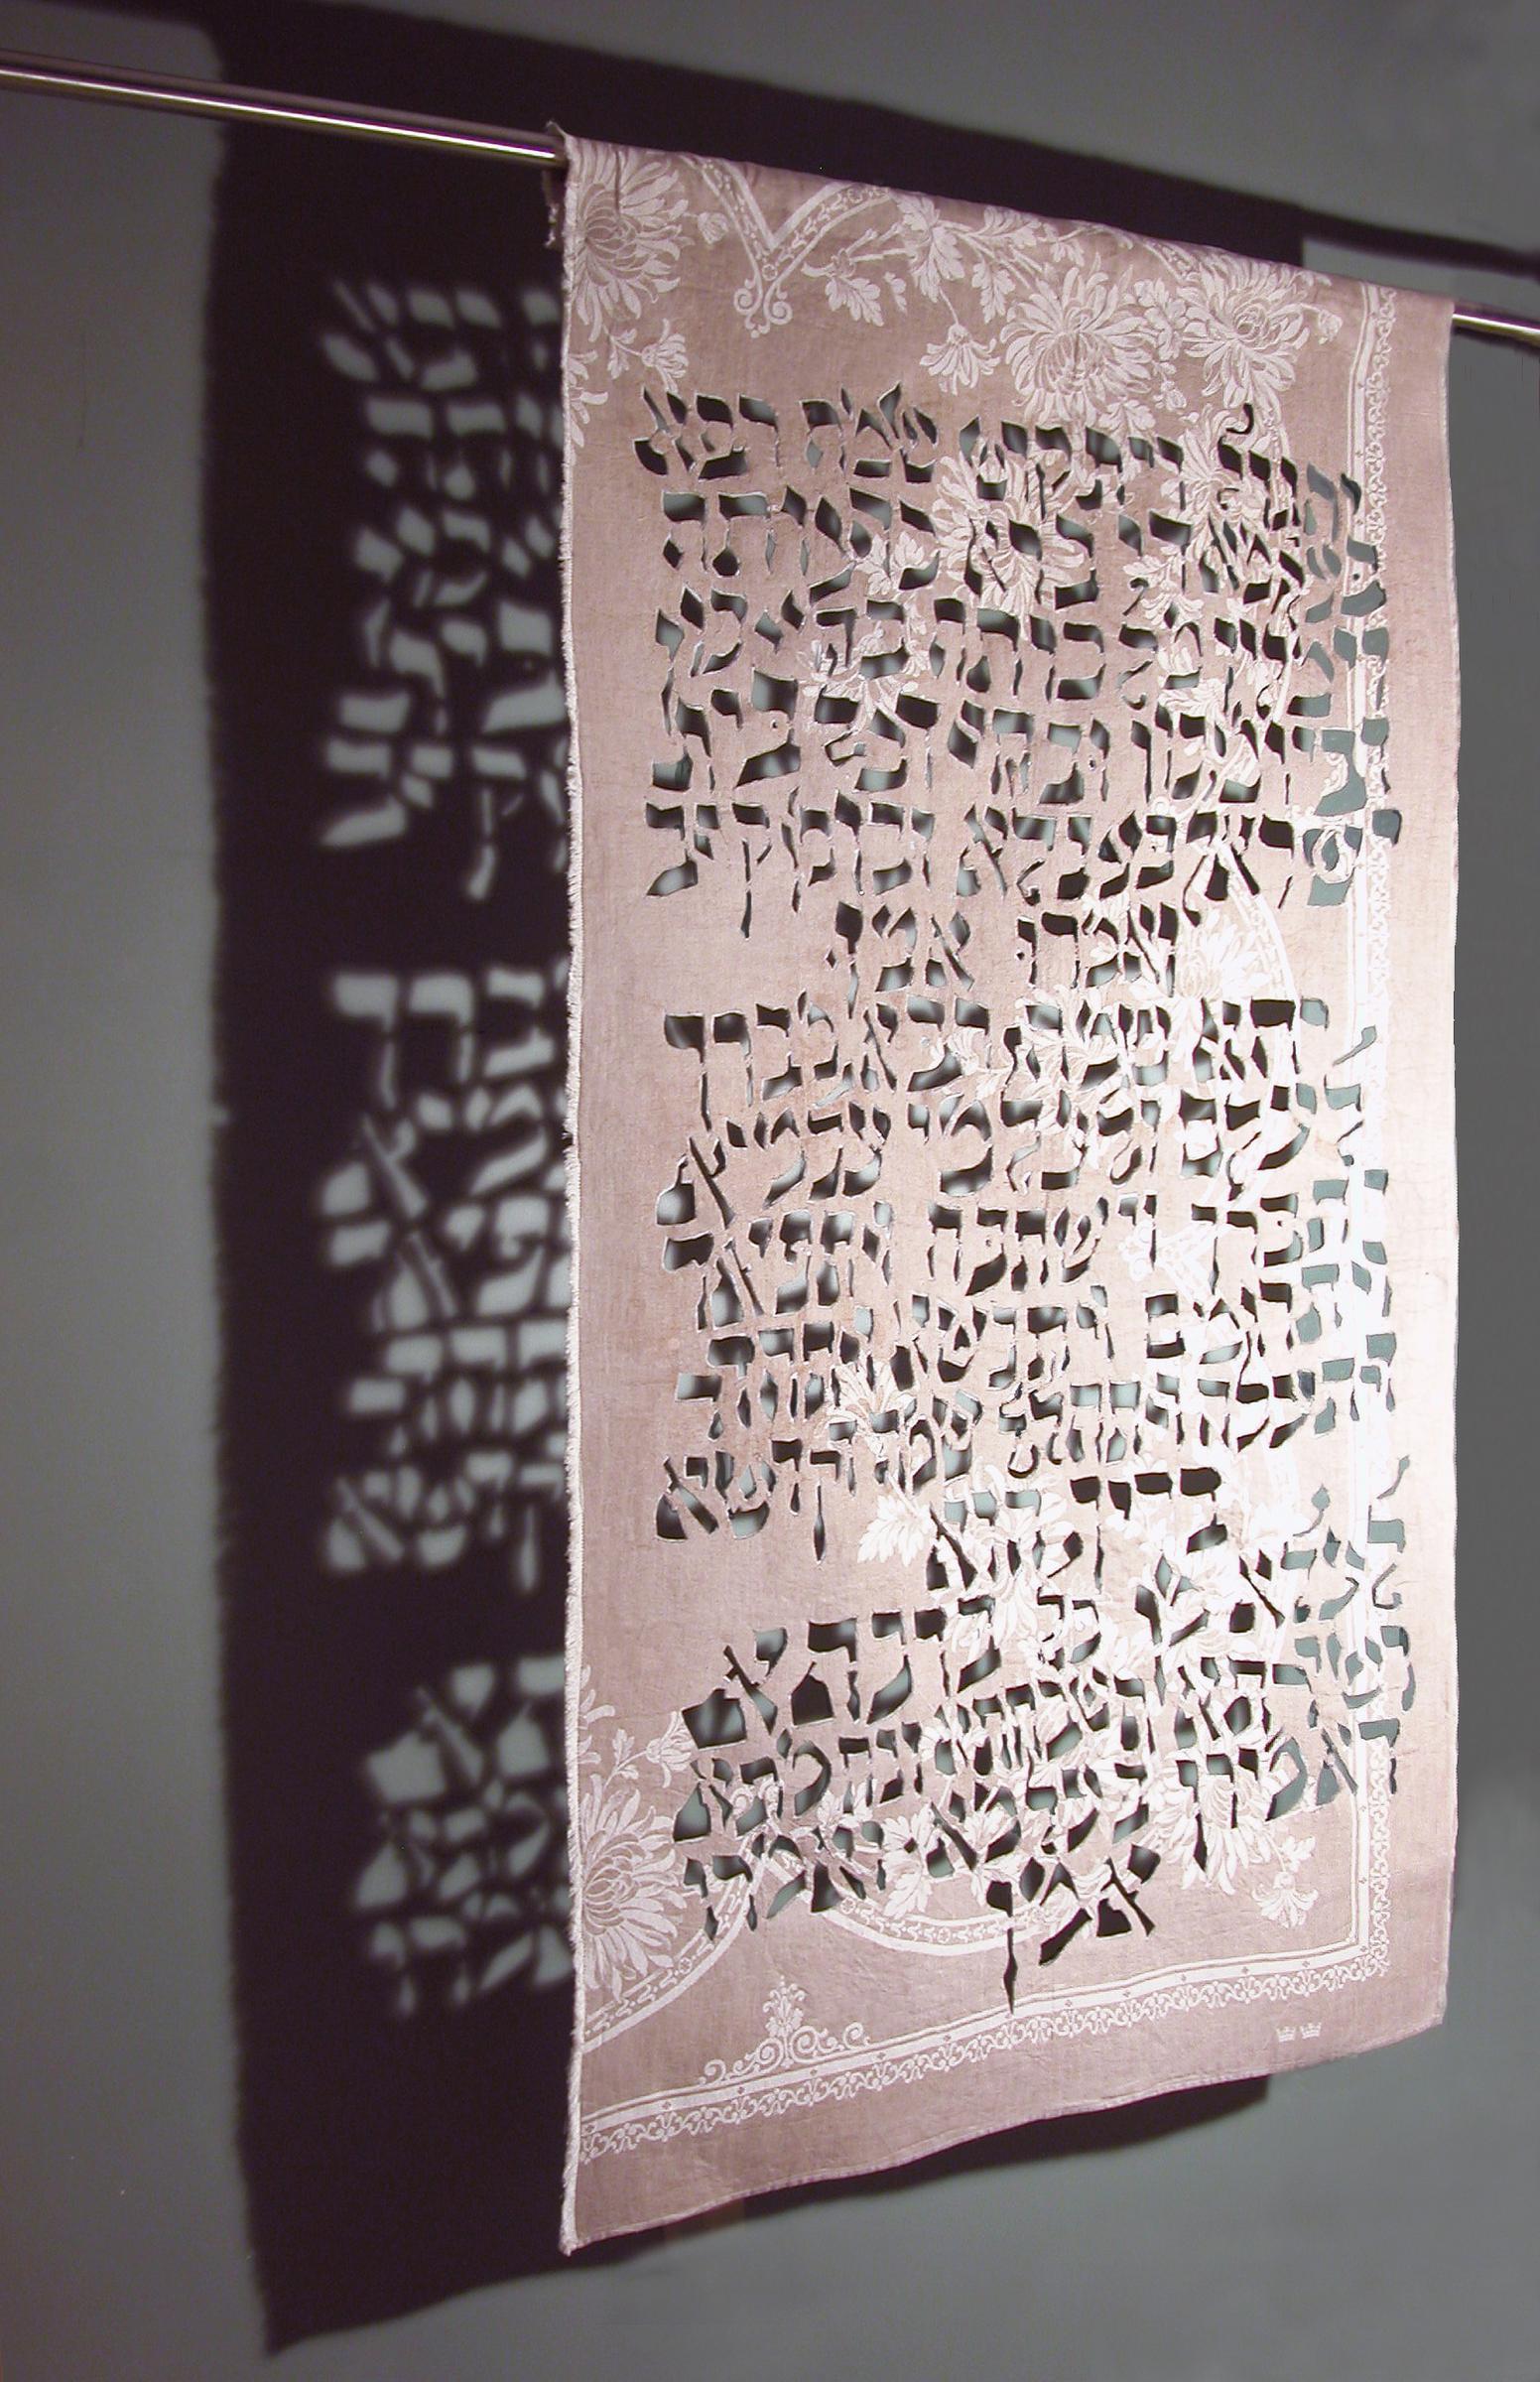 יתגדל ויתקדש שמה רבא
בעלמא די ברא כרעותה
וימליך מלכותה
ובחיי דכל בית
ישראל בעגלא ובזמן קריב
ואמרו אמן
יהא שמה רבא מברך
לעלם ולעלמי עלמיא
יתברך וישתבח ויתפאר
ויתרומם ויתנשא ויתהדר
ויתעלה ויתהלל שמה דקודשא
בריך הוא
לעלא מן כל ברכתא
ושירתא תשבחתא ונחמתא
דאמירן בעלמא ואמרו
אמן